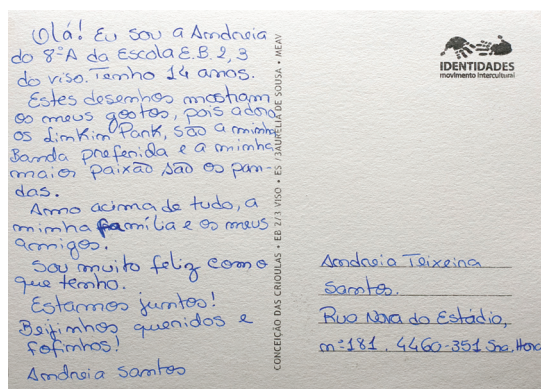 Olá! Eu sou a Andreia
do 8ºA da Escola E.B. 2, 3
do viso. Tenho 14 anos.
Estes desenhos mostram
os meus gostos, pois adoro
os Linkin Park, são a minha
Banda preferida e a minha
maior paixão são os pan-
das.
Amo acima de tudo, a
minha família e os meus
amigos.
Sou muito feliz como
que tenho.
Estamos juntos!
Beijinhos queridos e
fofinhos!
Andreia Santos
CONCEIÇÃO DAS CRIOULAS • EB 2/3 VISO • ES /3AURÉLIA DE SOUSA • MEAV
IDENTIDADES
movimento intercultural
Andreia Teixeira
Santos.
Rua Nova do Estádio,
nº181. 4460-351 Sra. Hora